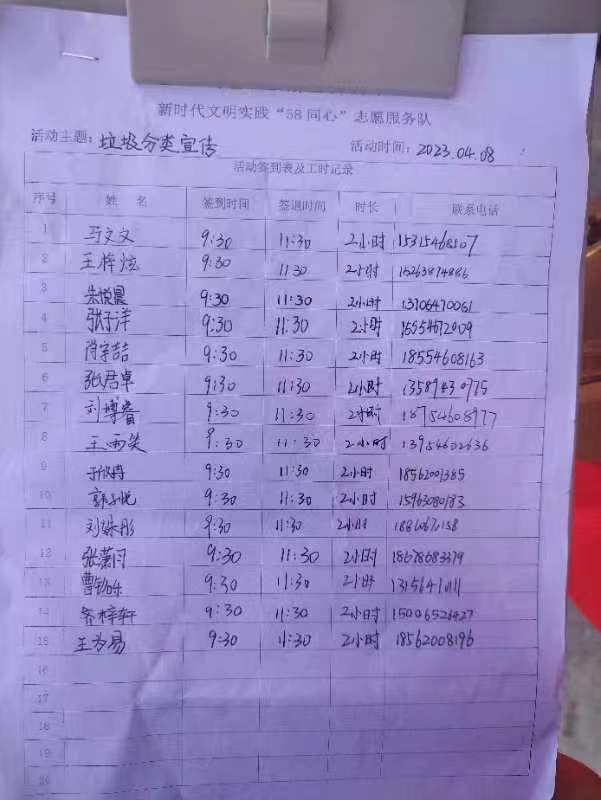 新时代文明实践“58同心”志愿服务队
活动主题：垃圾分类宣传 活动时间：2023.04.08
活动签到表及工时记录
序号 姓名 签到时间 签退时间 时长 联系电话
1 马文文 9:30 11:30 2小时 15315468507
2 王梓炫 9:30 11:30 2小时 15263874886
3 朱悦晨 9:30 11:30 2小时 13706470061
4 张子洋 9:30 11:30 2小时 15554672909
5 肖宇喆 9:30 11:30 2小时 18554608163
6 张君卓 9:30 11:30 2小时 13589430775
7 刘博睿 9:30 11:30 2小时 18754608977
8 王雨笑 9:30 11:30 2小时 13954602636
9 9:30 11:30 2小时 18562001385
10 郭子悦 9:30 11:30 2小时 15963080183
11 刘姝彤 9:30 11:30 2小时
12 张潇闪 9:30 11:30 2小时 18678683479
13 9:30 11:30 2小时
14 梓轩 9:30 11:30 2小时 15006526427
15 王芳易 9:30 11:30 2小时 18562008196
16
17
18
19
20